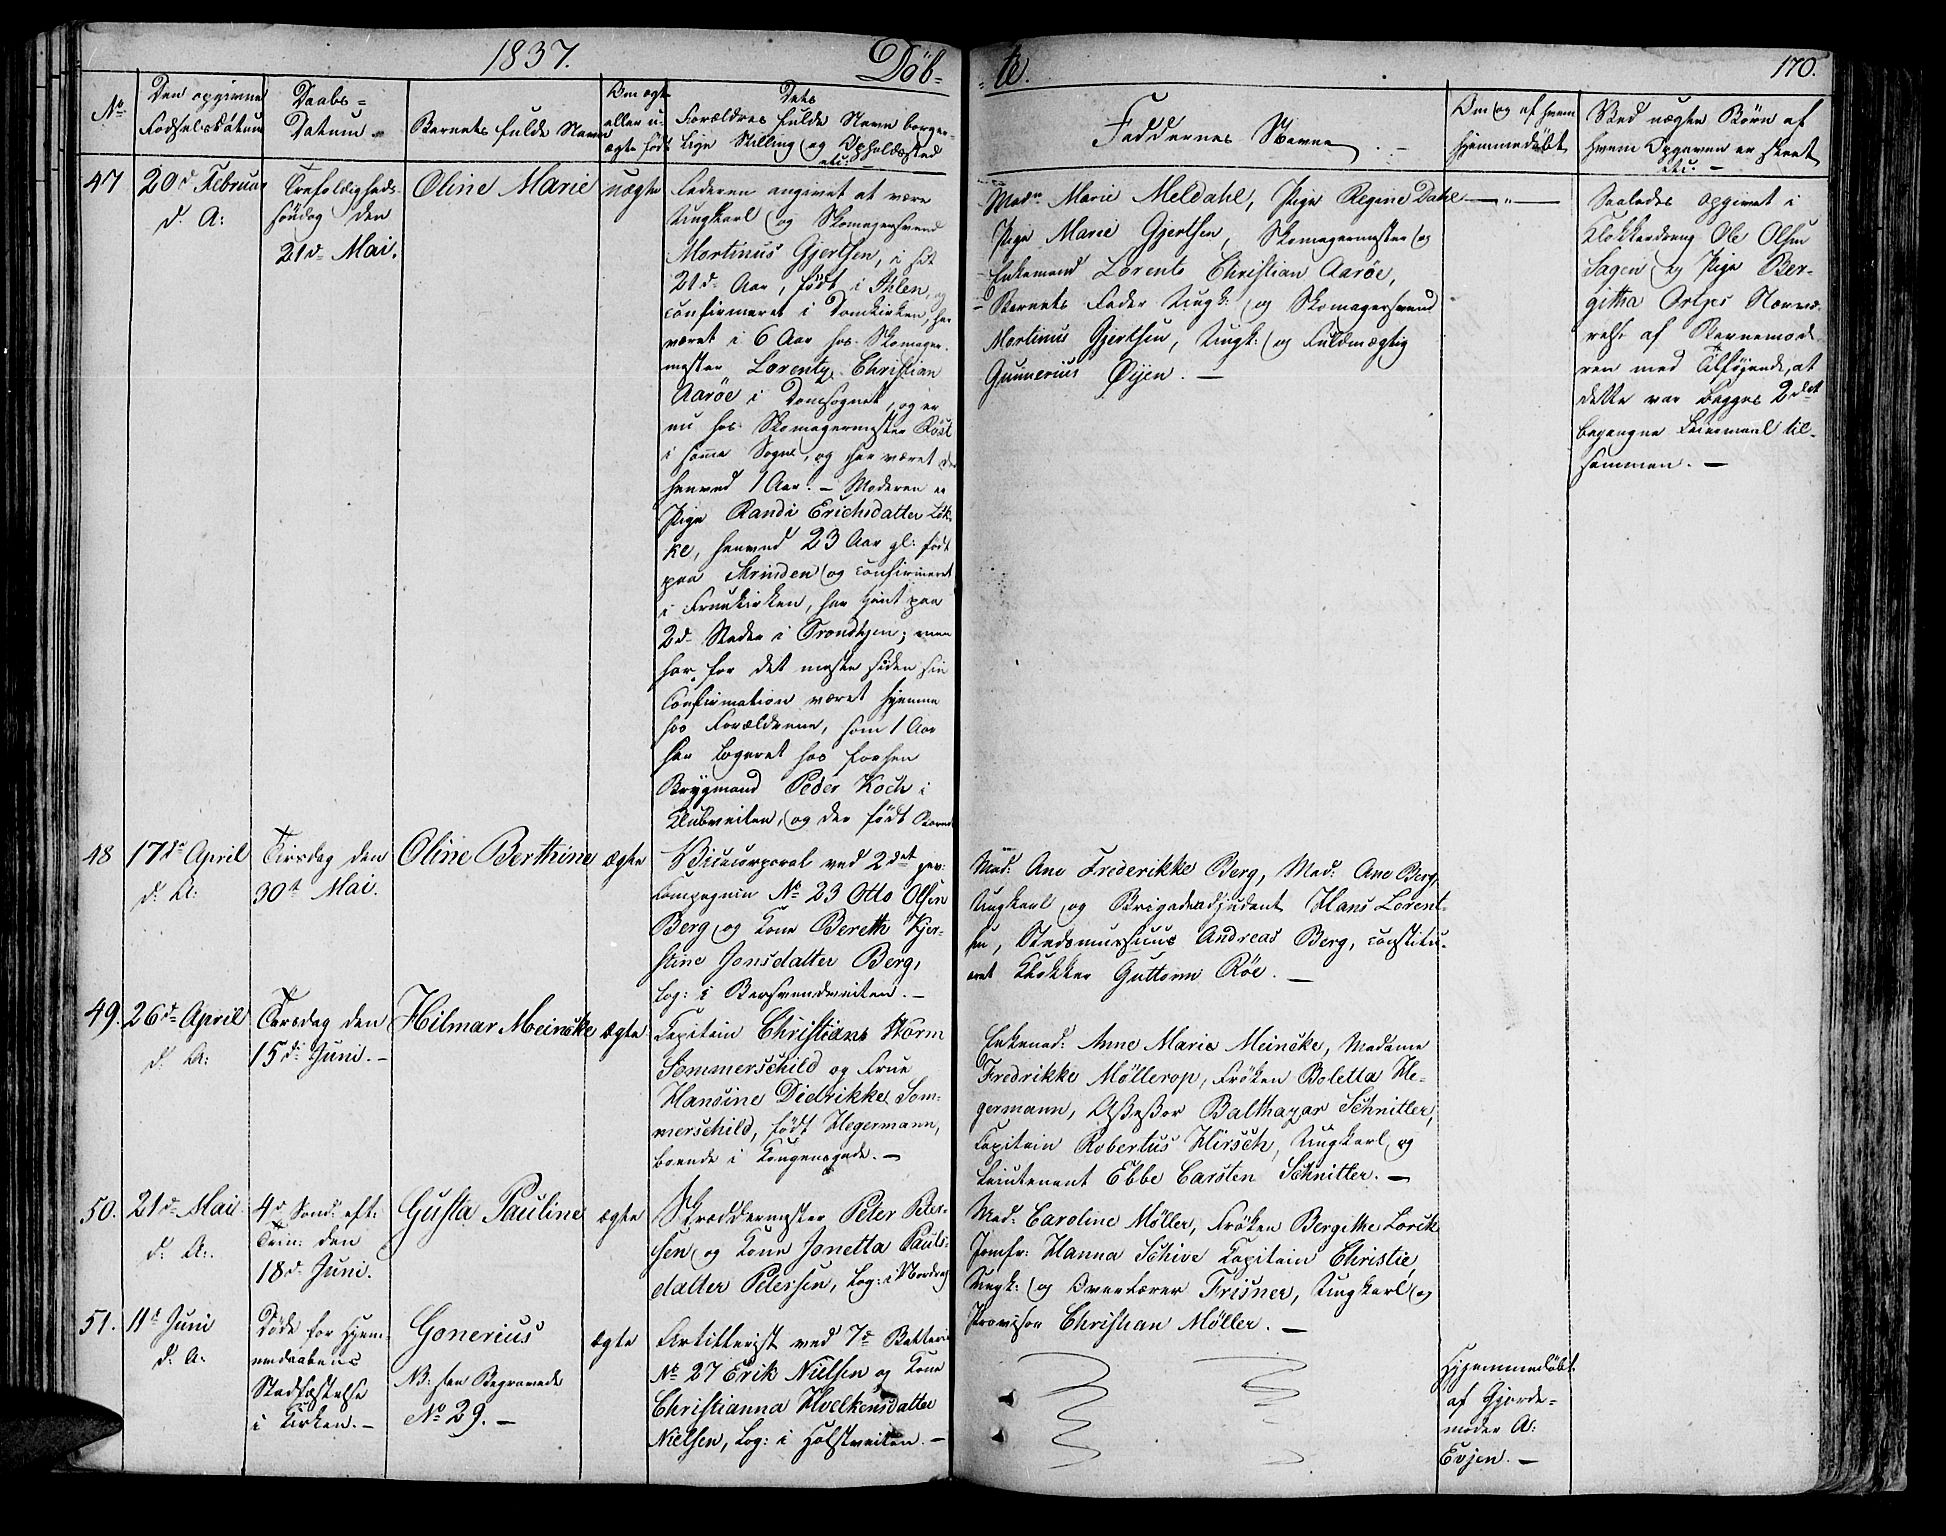 1837.
Døb-
te.
170.
No.
Den opgivne
Fødselsdatum
Daabs-
Datum.
Barnets fulde Navn
Om ægte
eller u-
ægte født
Dets
Forældres fulde Navn borger-
lige Stilling og Opholdssted
etc.
Faddernes Navne.
Om og af hvem
hjemmedøbt
Ved uægte Børn af
hvem Opgaven er skeet
etc. -
47
20d Februar
d. A:
Trefoldigheds-
søndag den
21d Mai.
Oline Marie
uægte
Faderen angivet at være
Ungkarl og Skomagersvend
Martinus Gjertsen, i sit
21d Aar, født i Ihlen, og
confirmeret i Domkirken, har
været i 6 Aar hos Skomager-
mester Lorentz Christian
Aarøe i Domsognet, og er
nu hos Skomagermester Røst
i samme Sogn, og har været der
henved 1 Aar. - Moderen er
Pige Randi Erichsdatter Løk-
ke, henved 23 Aar gl: født
paa Strinden og confirmeret
i Fruekirken, har tjent paa
2d Steder i Trondhjem; men
har for det meste siden sin
Confirmation været hjemme
hos Forældrene, som 1 Aar
har logeret hos forhen
Brygmand Peder Koch i
Klubveiten, og der født Barnet
Mad: Marie Meldahl, Pige Regine Dahl
Pige Marie Gjertsen, Skomagermester og
Enkemand Lorents Christian Aarøe,
Barnets Fader Ungk: og Skomagersvend
Martinus Gjertsen, Ungk: og Fuldmægtig
Gunnerius Øyen. -
- „ -
Saaledes opgivet i
Klokkerdreng Ole Olsen
Sagen og Pige Ber-
githa Nærvæ-
relse af Barnemode-
ren med Tilføyende, at
dette var begges 2det
begangne Leiermaal til-
sammen. -
48
17de April
d. A:
Tirsdag den
30t Mai.
Oline Berthine
ægte
Vicecorporal ved 2det
Compagnie No 23 Otto Olsen
Berg og Kone Bereth Kjer-
stine Jonsdatter Berg,
Log: i Bersvendveiten. -
Mad: Ane Frederikke Berg, Mad: Ane Berg,
Ungkarl og Brigadeadjudant Hans Lorent-
sen, Andreas Berg, constitu-
eret Klokker Guttorm Röe. -
49.
26d April
d. A:
Torsdag den
15d Juni. -
Hilmar Meincke
ægte
Capitain Christians Storm
Sommerschild og Frue
Hansine Diedrikke Som-
merschild, født Hegermann,
boende i Kongensgade. -
Enkemad: Anne Marie Meincke, Madame
Fredrikke Möllerop, Frøken Boletta He-
germann, Assessor Balthazar Schnitler,
Capitain Robertus Hirsch, Ungkarl og
Lieutenant Ebbe Carsten Schnitler. -
50.
21d Mai
d: A:
4d Sønd: eft:
Trin: den
18d Juni.
Gusta Pauline
ægte
Skræddermester Peter Peter-
sen og Kone Jonetta Pauls-
datter Petersen, Log: i Nordreg
Mad: Caroline Möller, Frøken Bergithe Lorck
Jomfr: Hanna Schive Capitain Christie,
Ungk: og Overlærer Frisner, Ungkarl og
Provisor Christian Möller. -
51.
11d Juni
d. A:
Døde før Hjem-
medaabens
Stadfæstelse
i Kirken. -
Gonerius
NB: see Begravede
No 29. -
ægte
Artillerist ved 7e Batteri
No 27 Erik Nielsen og Kone
Christianna Hvelkensdatter
Nielsen, Log: i Holstveiten. -
Hjemmedøbt
af Gjorde-
moder A:
Evjen. -